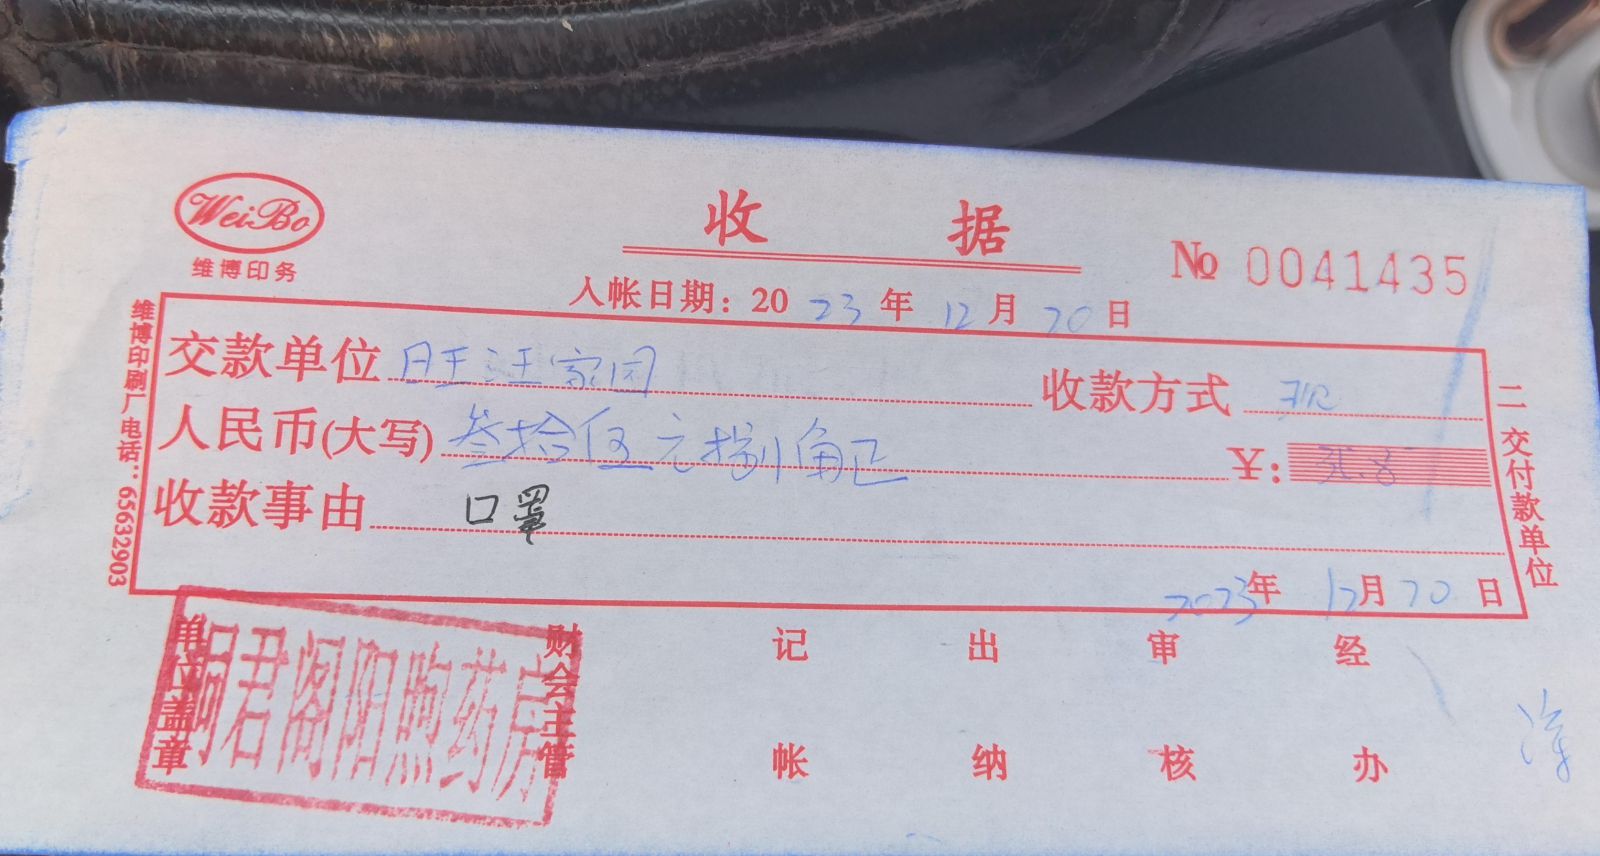 WeiBo
维博印务
收据
№ 0041435
入帐日期：2023年12月20日
交款单位 旺汪家园 收款方式 现
人民币(大写) 叁拾伍元捌角正 ￥：35.8
收款事由 口罩
2023年12月20日
维博印刷厂 电话：65632903
二交付款单位
单位盖章 财会主管 记帐 出纳 审核 经办
桐君阁阳煦药房